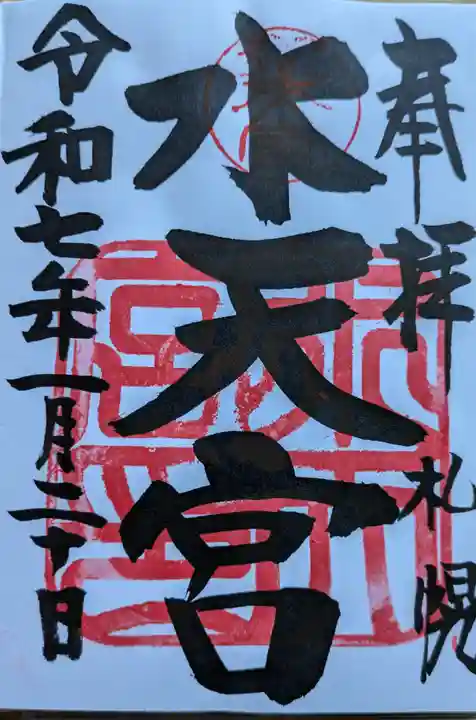 奉拝
札幌
水天宮
令和七年一月二十日